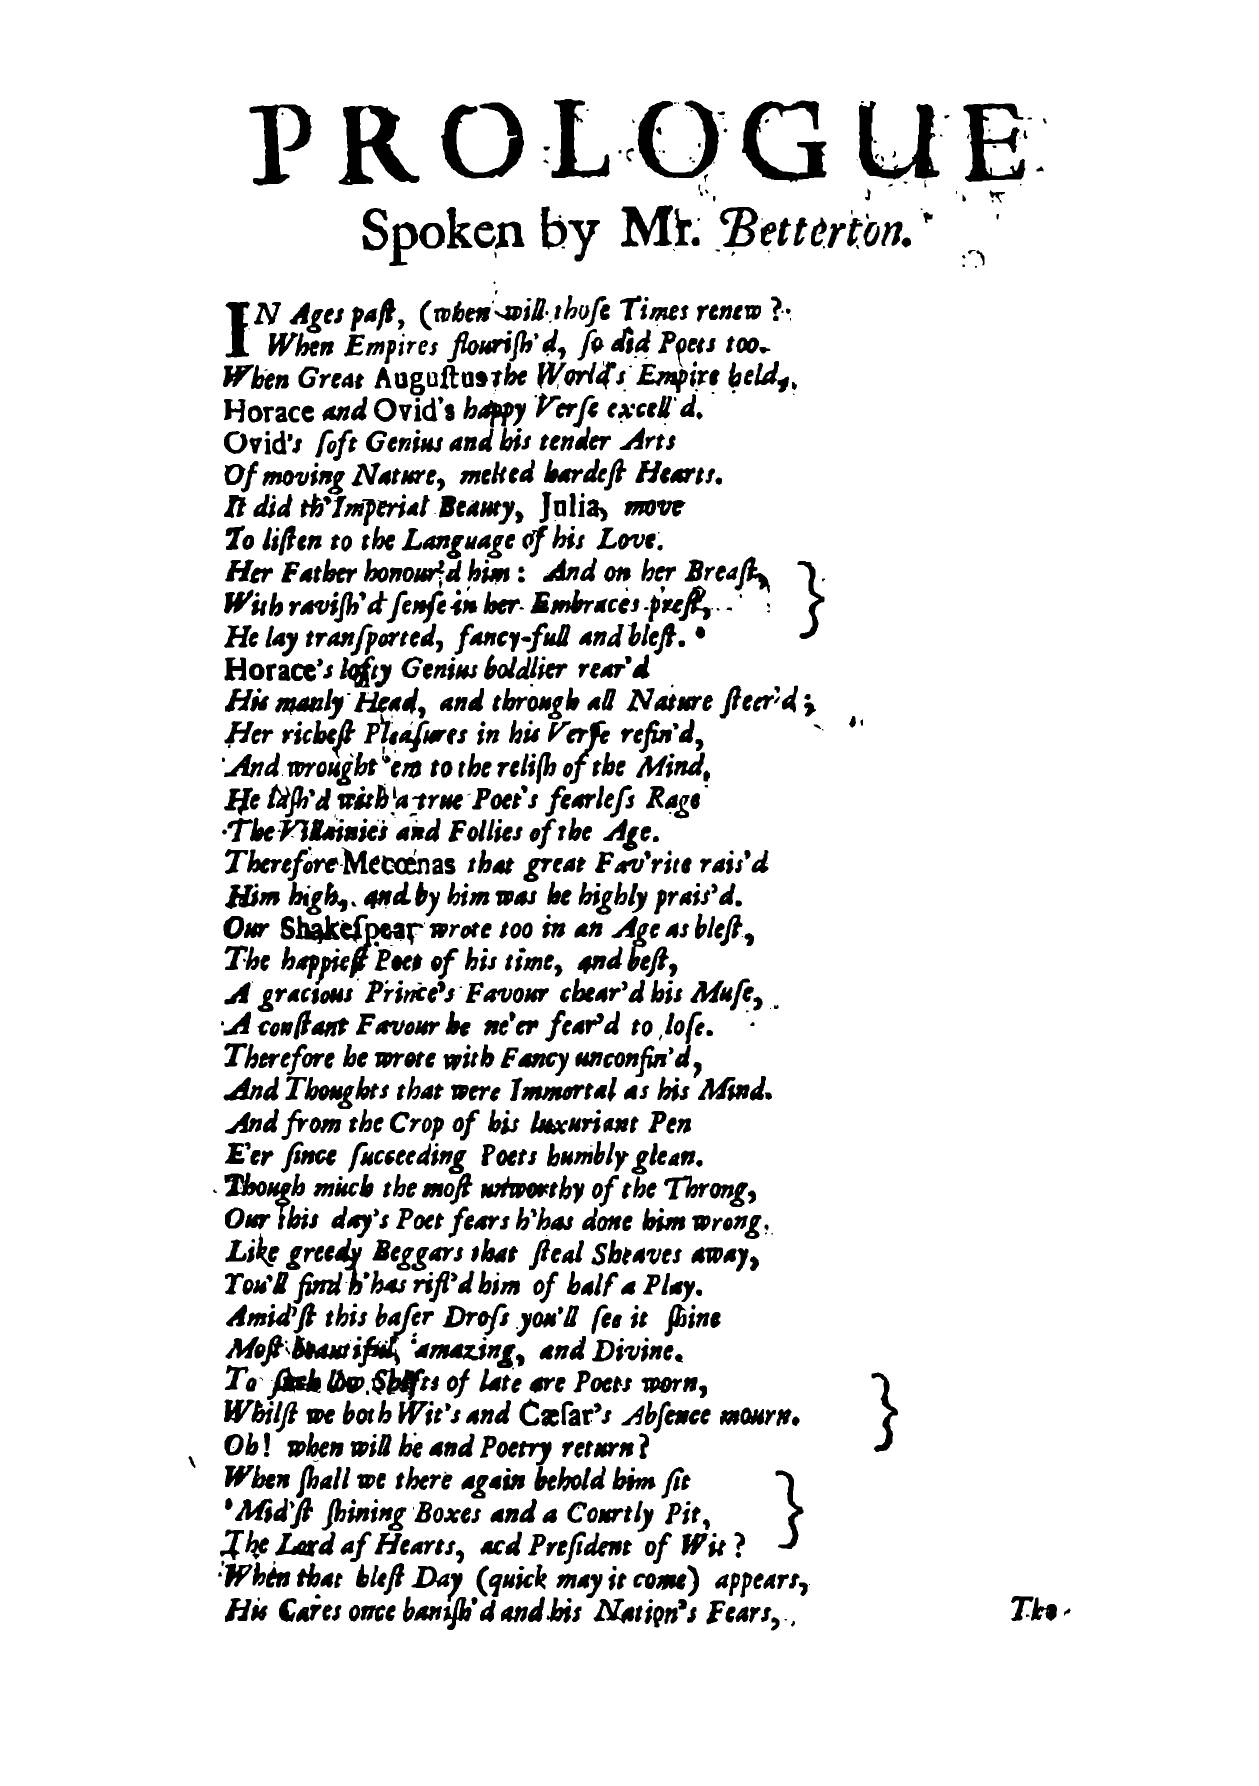 PROLOGUE
Spoken by Mr. Betterton.
IN Ages paſt, (when will thoſe Times renew?
When Empires flouriſh'd, ſo did Poets too.
When Great Auguſtus the World's Empire held,
Horace and Ovid's happy Verſe excell'd.
Ovid's ſoft Genius and his tender Arts
Of moving Nature, melted hardeſt Hearts.
It did th'Imperial Beauty, Julia, move
To liſten to the Language of his Love.
Her Father honour'd him: And on her Breaſt,
With raviſh'd ſenſe in her Embraces preſt,
He lay tranſported, fancy-full and bleſt.
Horace's lofty Genius boldlier rear'd
His manly Head, and through all Nature ſteer'd;
Her richeſt Pleaſures in his Verſe refin'd,
And wrought 'em to the reliſh of the Mind.
He laſh'd with a true Poet's fearleſs Rage
The Villainies and Follies of the Age.
Therefore Mecœnas that great Fav'rite rais'd
Him high, and by him was he highly prais'd.
Our Shakeſpear wrote too in an Age as bleſt,
The happieſt Poet of his time, and beſt,
A gracious Prince's Favour chear'd his Muſe,
A conſtant Favour he ne'er fear'd to loſe.
Therefore he wrote with Fancy unconfin'd,
And Thoughts that were Immortal as his Mind.
And from the Crop of his luxuriant Pen
E'er ſince ſucceeding Poets humbly glean.
Though much the moſt unworthy of the Throng,
Our this day's Poet fears h'has done him wrong.
Like greedy Beggars that ſteal Sheaves away,
You'll find h'has rifl'd him of half a Play.
Amid'ſt this baſer Droſs you'll ſee it ſhine
Moſt beautiful, amazing, and Divine.
To ſuch low Shifts of late are Poets worn,
Whilſt we both Wit's and Cæſar's Abſence mourn.
Oh! when will he and Poetry return?
When ſhall we there again behold him ſit
'Mid'ſt ſhining Boxes and a Courtly Pit,
The Lord af Hearts, acd Preſident of Wit?
When that bleſt Day (quick may it come) appears,
His Cares once baniſh'd and his Nation's Fears,
The